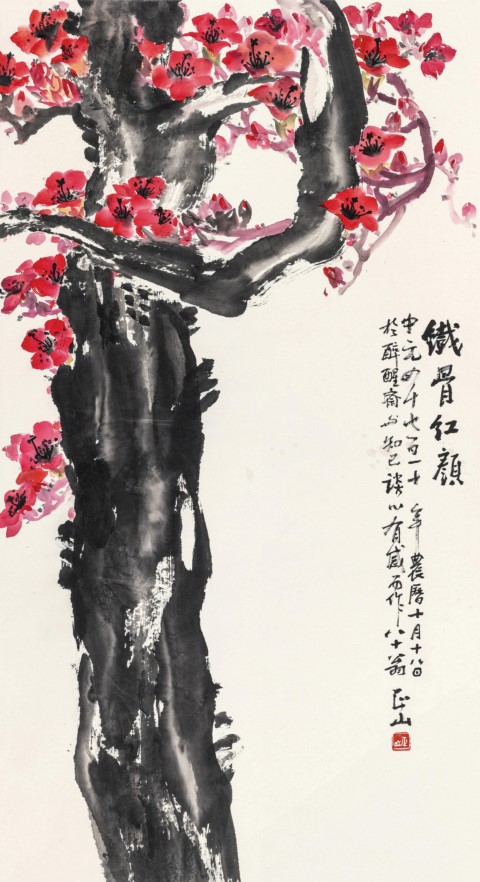 鐵骨紅顏
中元四千七百一十 年農曆十月十八日
於醉醒齋与知己談心有感而作八十翁 山